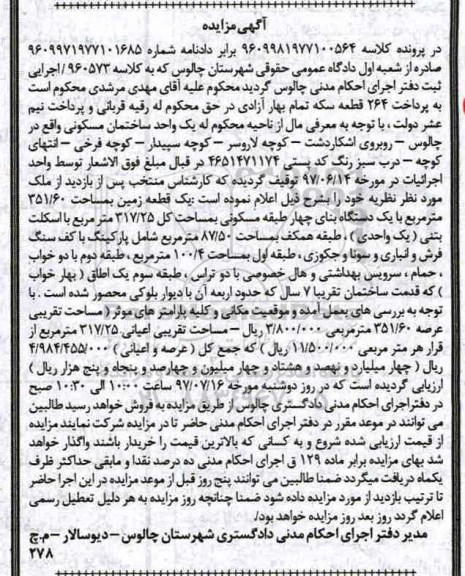 آگهی مزایده
در پرونده کلاسه ۹۶۰۹۹۸۱۹۷۷۱۰۰۵۶۴ برابر دادنامه شماره ۹۶۰۹۹۷۱۹۷۷۱۰۱۶۸۵
صادره از شعبه اول دادگاه عمومی حقوقی شهرستان چالوس که به کلاسه ۹۶۰۵۷۳ / اجرایی
ثبت دفتر اجرای احکام مدنی چالوس گردید محکوم علیه آقای مهدی مرشدی محکوم است
به پرداخت ۲۶۴ قطعه سکه تمام بهار آزادی در حق محکوم له رقیه قربانی و پرداخت نیم
عشر دولت ، با توجه به معرفی مال از ناحیه محکوم له یک واحد ساختمان مسکونی واقع در
چالوس – روبروی اشکاردشت – کوچه لاروسر – کوچه سپیدار – کوچه فرخی – انتهای
کوچه – درب سبز رنگ کد پستی ۴۶۵۱۴۷۱۱۷۴ در قبال مبلغ فوق الاشعار توسط واحد
اجرائیات در مورخه ۹۷/۰۶/۱۴ توقیف گردیده که کارشناس منتخب پس از بازدید از ملک
مورد نظر نظریه خود را بشرح ذیل اعلام نموده است :یک قطعه زمین بمساحت ۳۵۱/۶۰
مترمربع با یک دستگاه بنای چهار طبقه مسکونی بمساحت کل ۳۱۷/۲۵ متر مربع با اسکلت
بتنی ( یک واحدی ) ، طبقه همکف بمساحت ۸۷/۵۰ مترمربع شامل پارکینگ با کف سنگ
فرش و انباری و سونا و جکوزی ، طبقه اول بمساحت ۱۰۰/۴ مترمربع ، طبقه دوم با دو خواب
، حمام ، سرویس بهداشتی و هال خصوصی با دو تراس ، طبقه سوم یک اطاق ( بهار خواب
) که قدمت ساختمان تقریبا ۷ سال که حدود اربعه آن با دیوار بلوکی محصور شده است . با
توجه به بررسی های بعمل آمده و موقعیت مکانی و کلیه پارامتر های موثر ( مساحت تقریبی
عرصه ۳۵۱/۶۰ مترمربعی ۳/۸۰۰/۰۰۰ ریال – مساحت تقریبی اعیانی ۳۱۷/۲۵ مترمربع از
قرار هر متر مربعی ۱۱/۵۰۰/۰۰۰ ریال ) که جمع کل ( عرصه و اعیانی ) ۴/۹۸۴/۴۵۵/۰۰۰
ریال ( چهار میلیارد و نهصد و هشتاد و چهار میلیون و چهارصد و پنجاه و پنج هزار ریال )
ارزیابی گردیده است که در روز دوشنبه مورخه ۹۷/۰۷/۱۶ ساعت ۱۰:۰۰ الی ۱۰:۳۰ صبح
در دفتراجرای احکام مدنی دادگستری چالوس از طریق مزایده به فروش خواهد رسید طالبین
می توانند در موعد مقرر در دفتر اجرای احکام مدنی حاضر تا در مزایده شرکت نمایند مزایده
از قیمت ارزیابی شده شروع و به کسانی که بالاترین قیمت را خریدار باشند واگذار خواهد
شد بهای مزایده برابر ماده ۱۲۹ ق اجرای احکام مدنی ده درصد نقدا و مابقی حداکثر ظرف
یکماه دریافت میگردد ضمنا طالبین می توانند پنج روز قبل از موعد مزایده در این اجرا حاضر
تا ترتیب بازدید از مورد مزایده داده شود ضمنا چنانچه روز مزایده به هر دلیل تعطیل رسمی
اعلام گردد روز بعد روز مزایده خواهد بود/.
مدیر دفتر اجرای احکام مدنی دادگستری شهرستان چالوس – دیوسالار – م.چ
۲۷۸